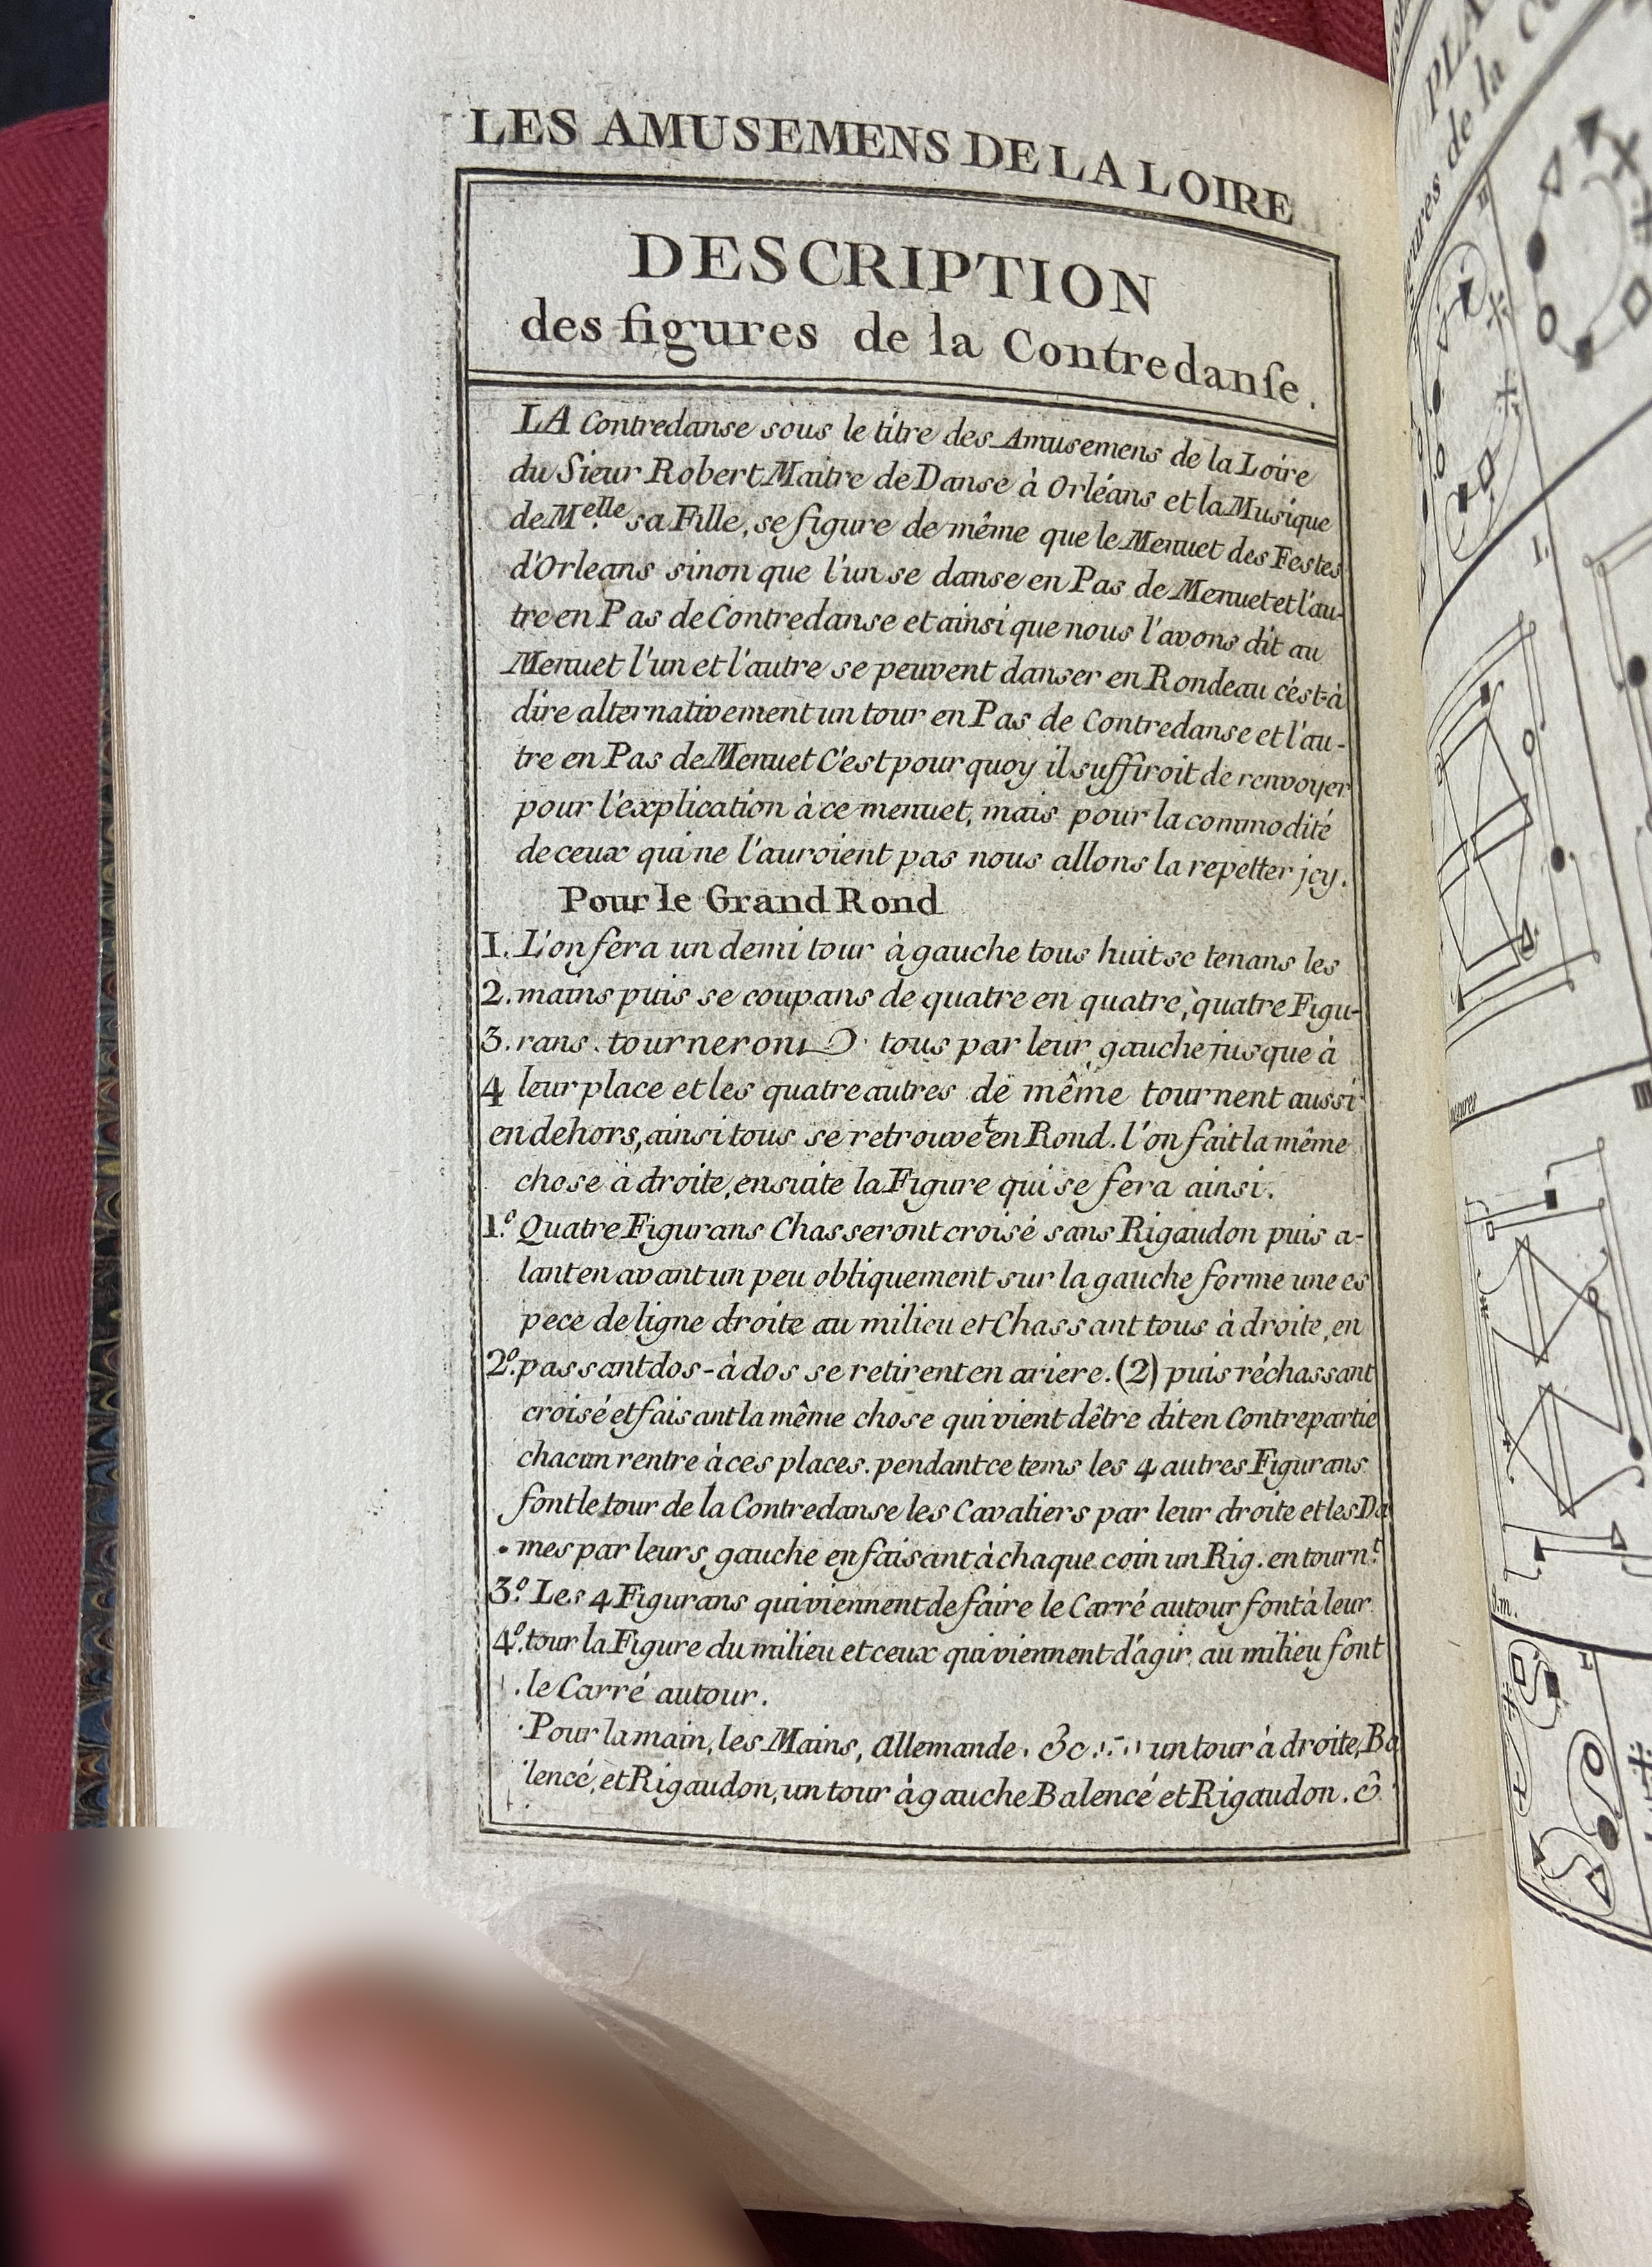 LES AMUSEMENS DE LA LOIRE
DESCRIPTION
des figures de la Contredanſe.
LA Contredanse sous le titre des Amusemens de la Loire
du Sieur Robert Maitre de Danse à Orléans et la Musique
de M.elle sa Fille, se figure de même que le Menuet des Festes
d'Orleans sinon que l'un se danse en Pas de Menuet et l'au-
tre en Pas de Contredanse et ainsi que nous l'avons dit au
Menuet l'un et l'autre se peuvent danser en Rondeau c'est-à
dire alternativement un tour en Pas de Contredanse et l'au-
tre en Pas de Menuet C'est pour quoy il suffiroit de renvoyer
pour l'explication à ce menuet, mais pour la commodité
de ceux qui ne l'auroient pas nous allons la repetter jcy.
Pour le Grand Rond
1. L'on fera un demi tour à gauche tous huit se tenans les
2. mains puis se coupans de quatre en quatre, quatre Figu-
3. rans tourneront tous par leur gauche jusque à
4 leur place et les quatre autres de même tournent aussi
en dehors, ainsi tous se retrouvet en Rond. l'on fait la même
chose à droite, ensuite la Figure qui se fera ainsi.
1.º Quatre Figurans Chasseront croisé sans Rigaudon puis a-
lant en avant un peu obliquement sur la gauche forme une es
pece de ligne droite au milieu et Chassant tous à droite, en
2º. passant dos-à dos se retirent en ariere. (2) puis réchassant
croisé et faisant la même chose qui vient dêtre dit en Contrepartie
chacun rentre à ces places. pendant ce tems les 4 autres Figurans
font le tour de la Contredanse les Cavaliers par leur droite et les Da
mes par leurs gauche en faisant à chaque coin un Rig. en tournt.
3º. Les 4 Figurans qui viennent de faire le Carré autour font à leur
4º. tour la Figure du milieu et ceux qui viennent d'agir au milieu font
le Carré autour.
Pour la main, les Mains, Allemande. &c. un tour à droite, Ba
lencé, et Rigaudon, un tour à gauche Balencé et Rigaudon. &
PLA
de la Co